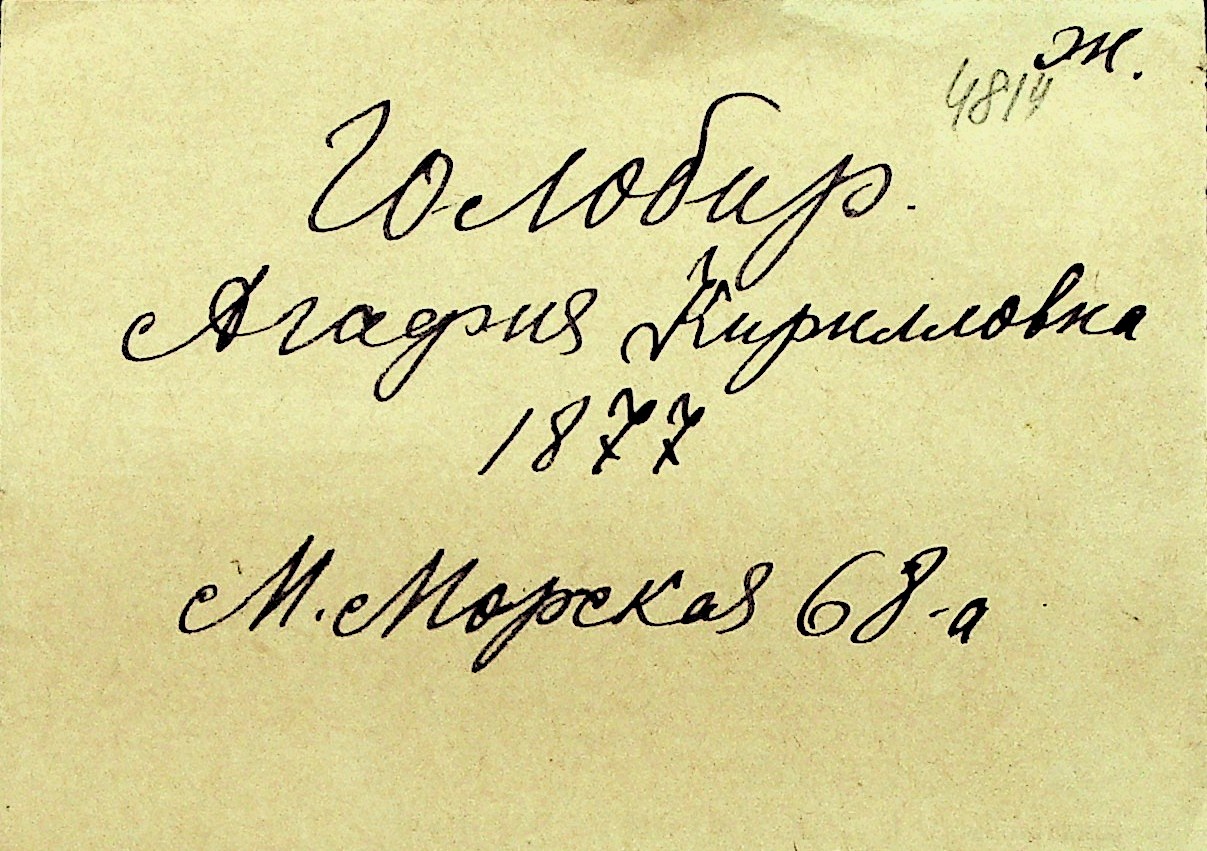 ж.
4814
Голобир.
Агафия Кирилловна
1877
М. Морская 68-а